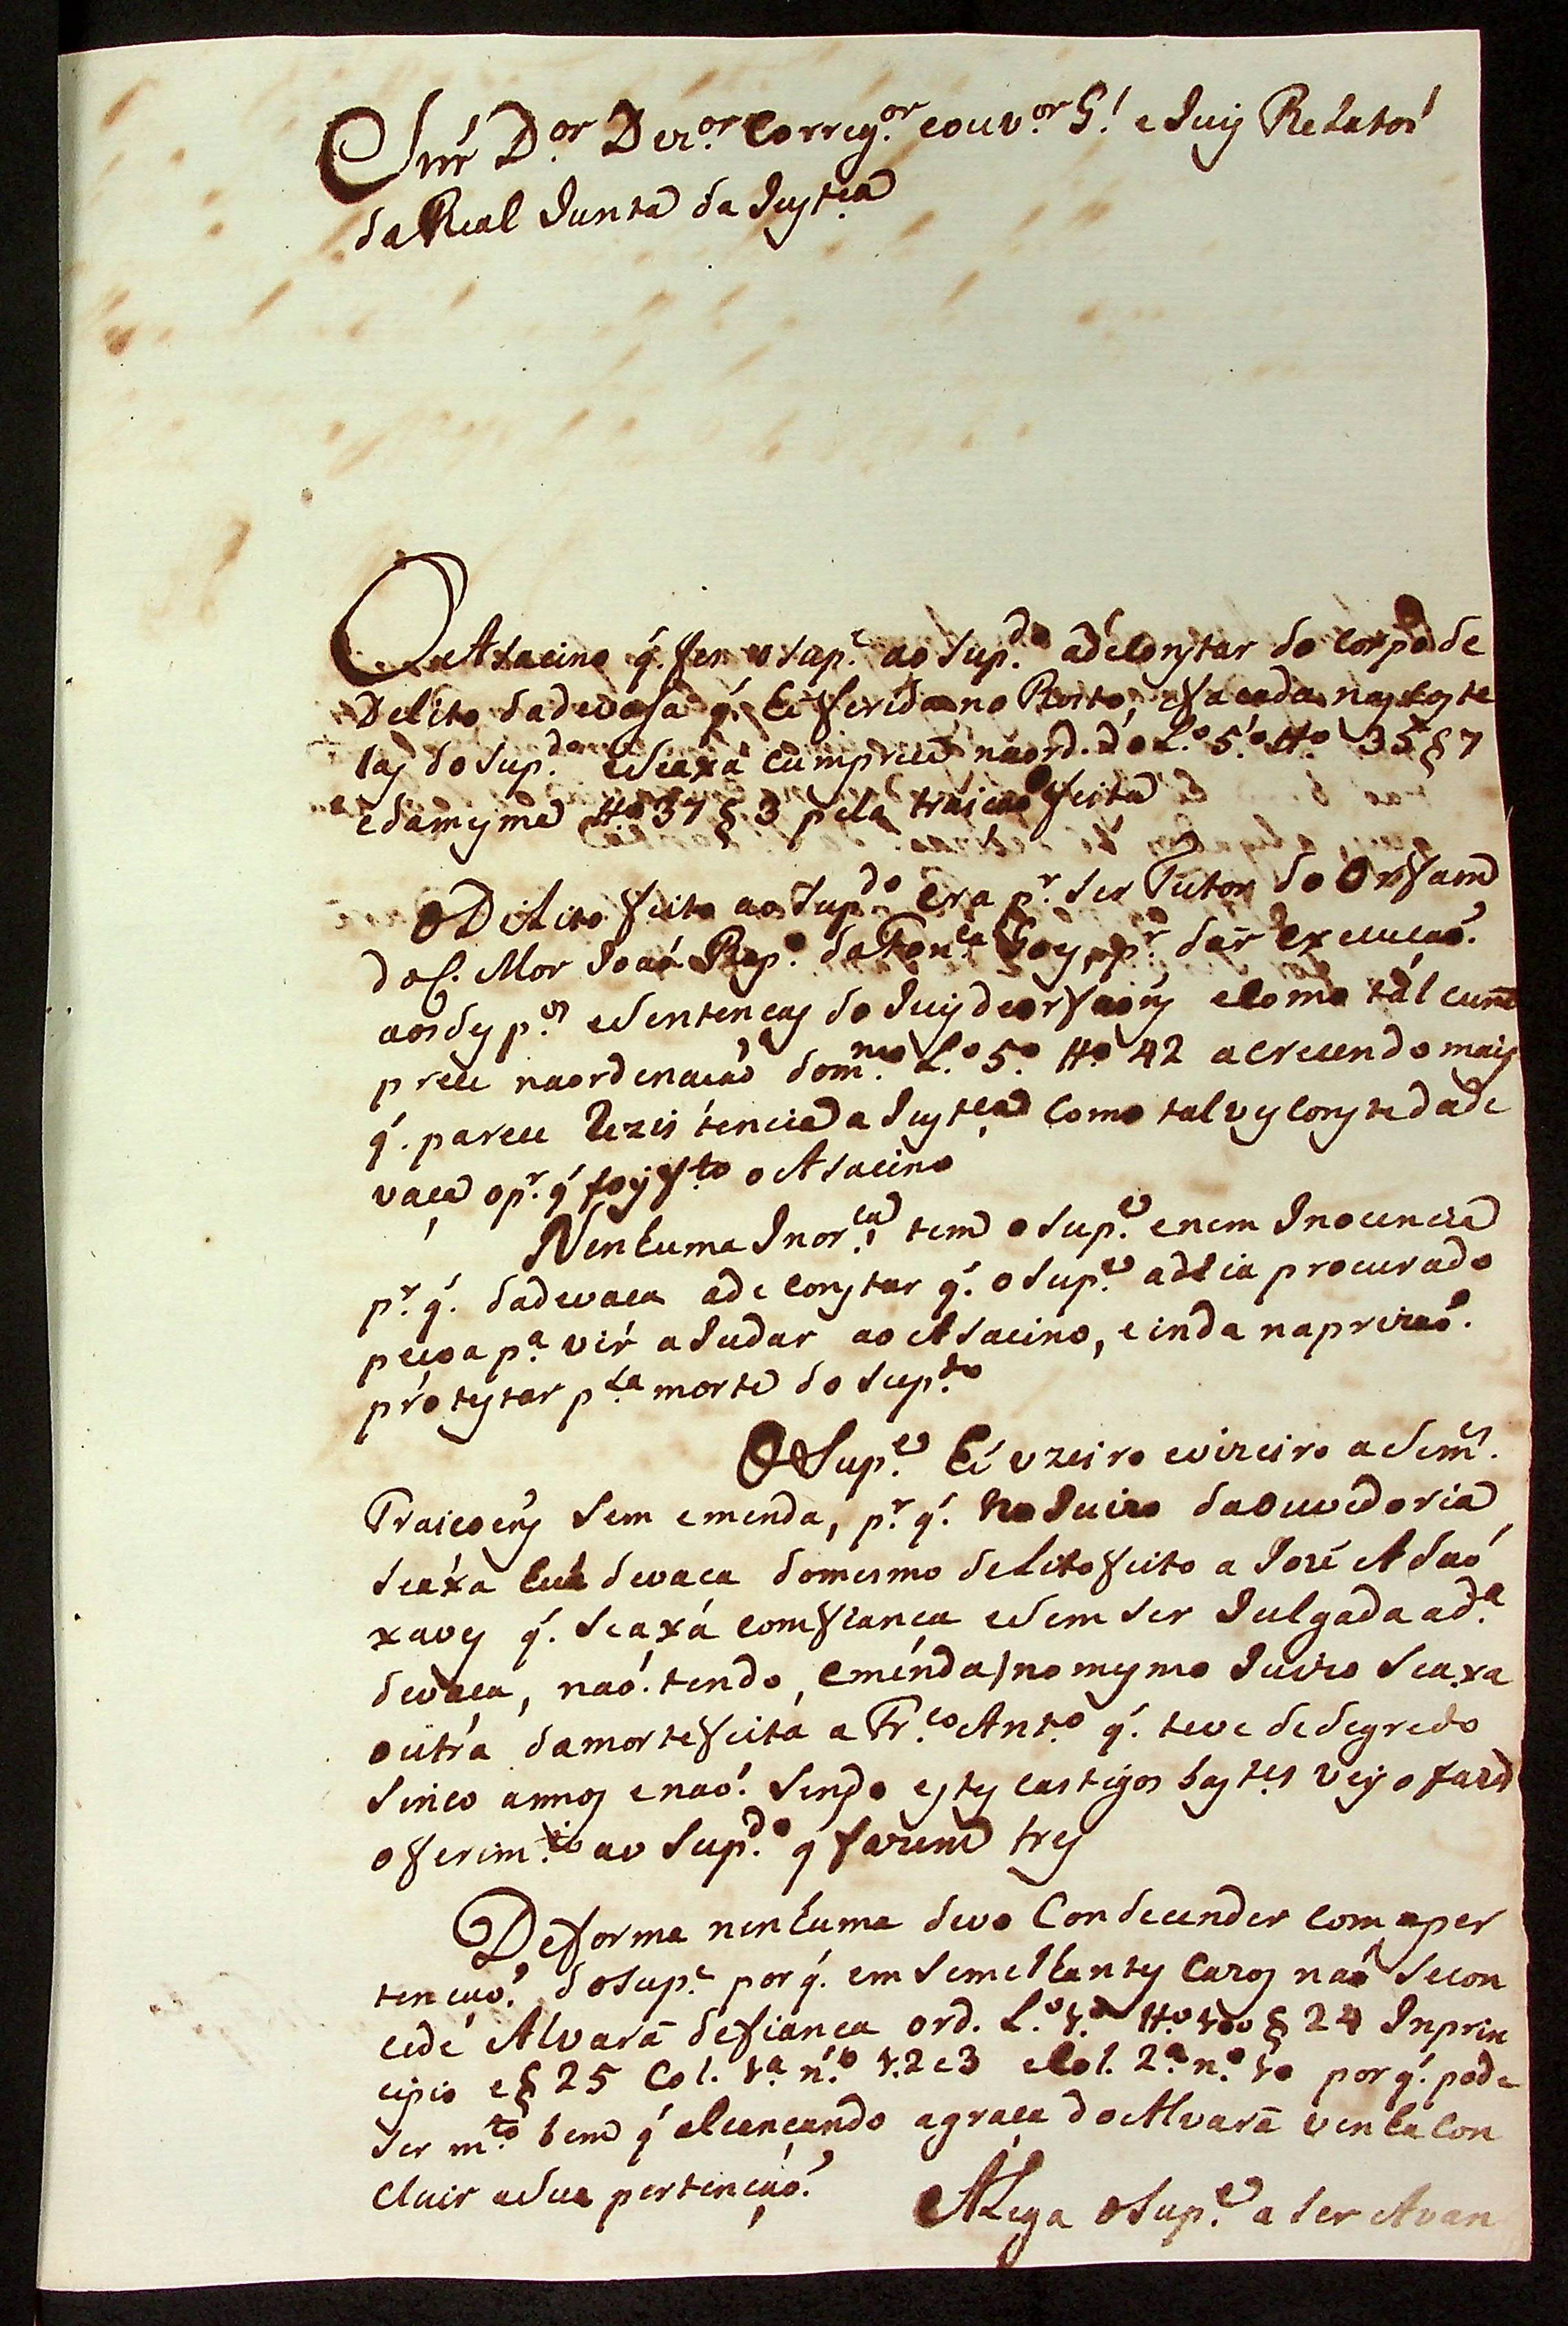 Snr̃ D.or Dez.or Correg.or eouv.or G.l e Juiz Relator
da Real Junta da Justca
O Asacino q̃. fes o sup.e ao sup.do adeConstar do Corpo de
Delito dadevasa q̃. hé ferida no Rosto, efacada nas Coste
las do sup.do eseaxa Cumprece naord. do L.o 5.o tt.o 35 § 7
edamesma tt.o 37 § 3 pela traicaó feita
O Dilito feito ao sup.do era p.r ser Tutor do Orfam
do C. Mor Joaó Rap.o daFon.ca Goes, e p.r dar execucaó.
aos desp.os esentenças do Juis deorfaons eComo tál cum
prece naordenacaó dom.mo L.o 5.o tt.o 42 acrecendo mais
q̃. parece Rezistencia a Justca Como talves Conste dade
vaça opr. q̃ foy fto o Asacino
Nenhuma Inor.ca tem o sup.e enem Inocencia
p.r q̃. dadevaca ade Constar q̃. o sup.e adeia procurado
peçoa p.a vir aJudar ao Asacino, e inda naprizaó.
protestar p.la morte do sup.do
O Sup.e hé uzeiro evizeiro asem.es
Traicoens sem emenda, p.r q̃. no Juizo daouvidoria
seáxa huá devaca domesmo delito feito a Jozé Adaó
xaves q̃. seaxá comfianca esem ser Julgada ad.a
devaca, naó. tendo, emenda, no mesmo Juizo seaxa
outra damorte feita a Fr.co Ant.o q̃. teve dedegredo
sinco annos enaó. sendo estes castigos bastes veyo fazer
o ferim.to ao sup.do q fazem tres
Deforma nenhuma devo Condecender com aper
tencaó. dosup.e por q̃. em semelhantes Cazos naó secon
cede Alvará defianca ord. L.o 1.o tt.o 100 § 24 Inprin
cipio e § 25 Col. 1.a n.o 1.2e3 eCol. 2.a n.o 10 por q̃. pode
ser m.to bem q̃ alcançando agraca doAlvará venha Con
cluir asua pertencaó.
Alega o sup.e a ser Avan